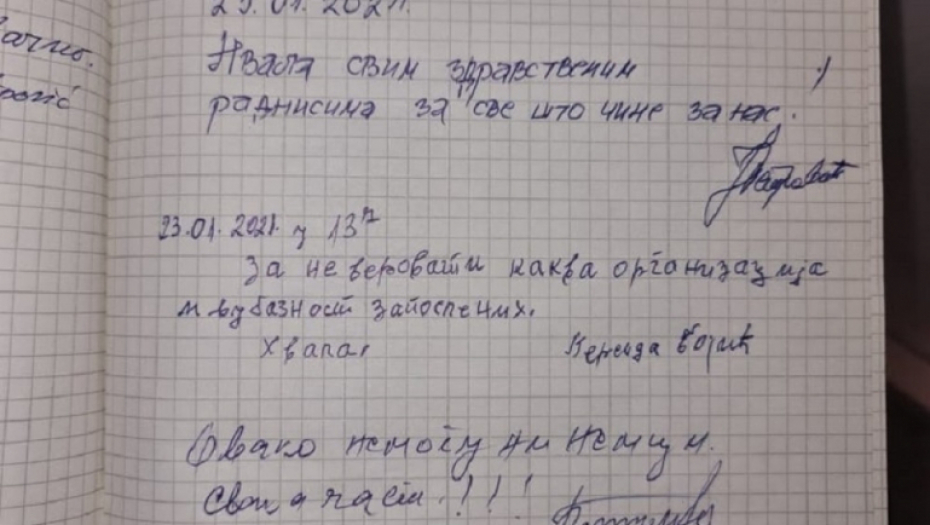 ачно.
23.01.2021.
Хвала свим здравственим
раднисима за све што чине за нас.
23.01.2021. у 13
За не веровати каква организација
и љубазност запослених.
Хвала,
Овако не могу ни Немци.
Свака част.!!!